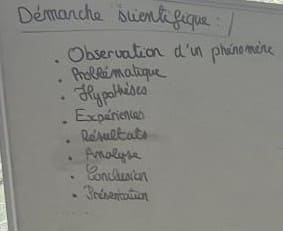 Démarche scientifique :
. Observation d'un phénomène
. Problématique
. Hypothèses
. Expériences
. Résultats
. Analyse
. Conclusion
. Présentation